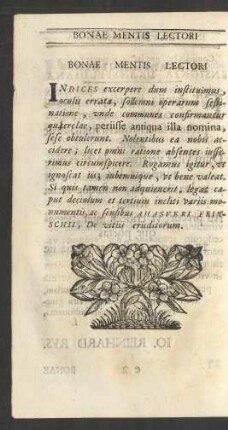 BONAE MENTIS LECTORI
BONAE MENTIS LECTORI
INDICES excerpere dum instituimus,
oculis errata, sollemni operarum festi-
natione, vnde communes confirmantur
querelae, periisse antiqua illa nomina,
sese obtulerunt. Nolentibus ea nobis ac-
cedere; licet omni ratione absentes iusse-
rimus circumspicere. Rogamus igitur, vt
ignoscat iis, iubemusque, vt bene valeat.
Si quis tamen non adquieuerit, legat ca-
put decimum et tertium incliti variis mo-
numentis, ac sensibus AHASVERI FRIT-
SCHII, De vitiis eruditorum.
IO. REINHARD RVS.
BONAE